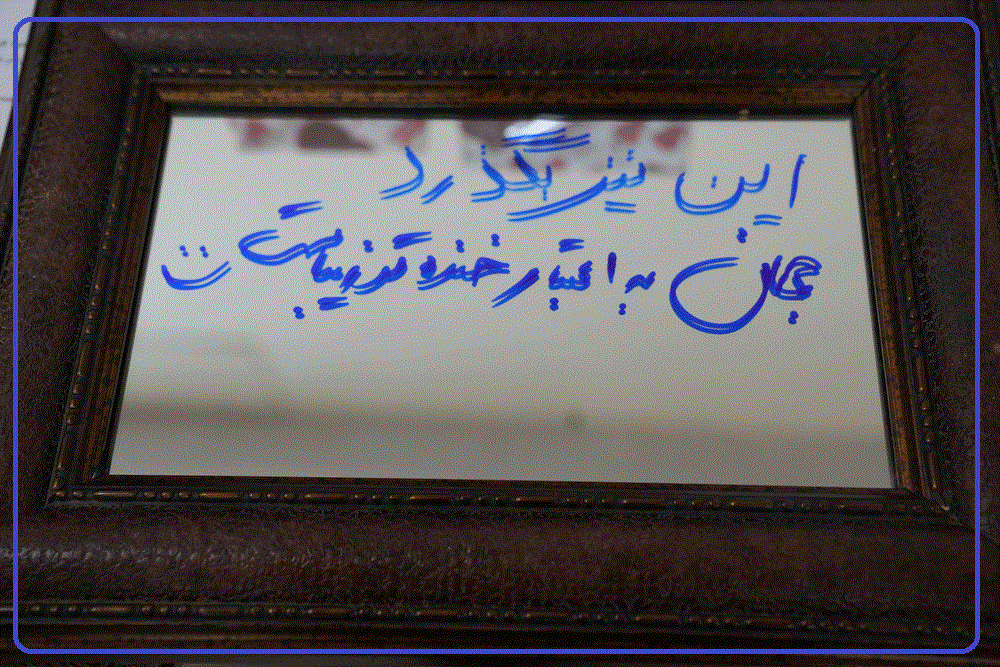 این نیز بگذرد
جهان به اعتبار خنده تو زیباست